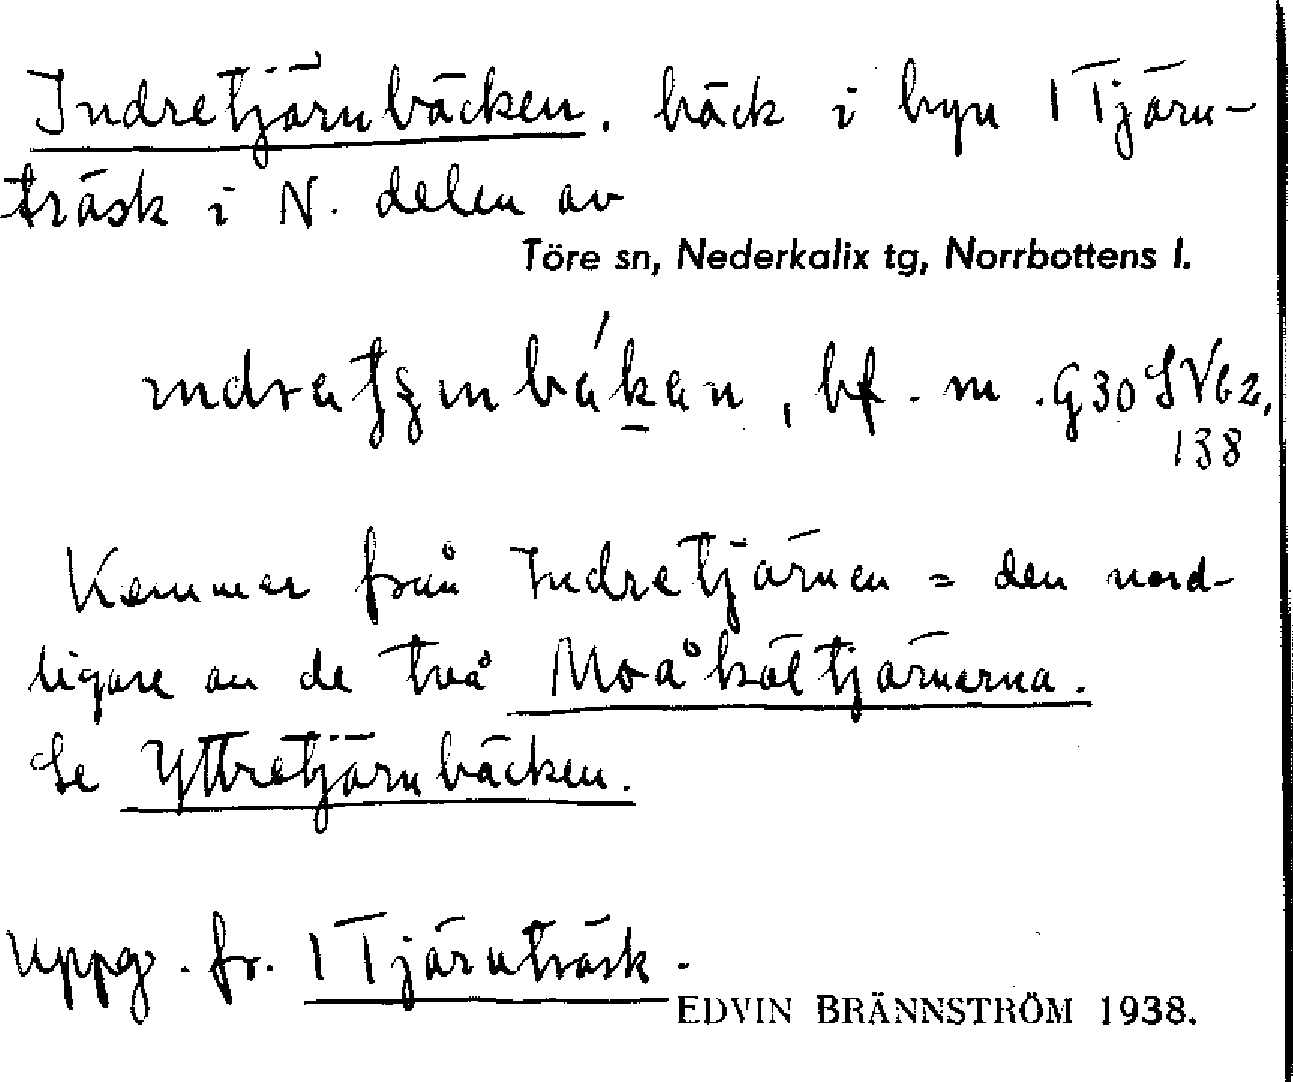 Indretjärnbäcken. bäck i byn 1 Tjärn-
träsk i N. delen av
Töre sn, Nederkalix tg, Norrbottens l.
bf. m. G30 SV62,
138
Kommer från Indretjärnen = den nord-
ligare av de två Moåkältjärnarna.
Se Yttretjärnbäcken.
Uppg. fr. 1 Tjärnträsk.
EDVIN BRÄNNSTRÖM 1938.